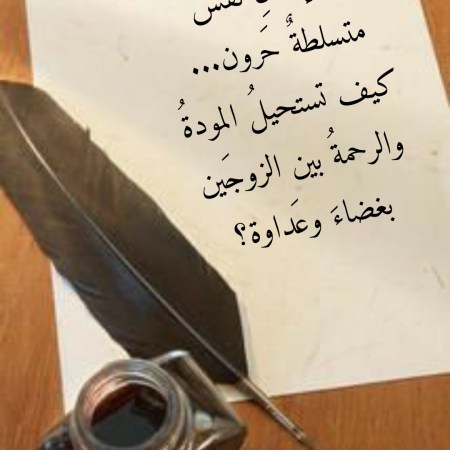 نفس
متسلطةٌ حَرون...
كيف تستحيلُ المودةُ
والرحمةُ بين الزوجَين
بغضاءَ وعَداوة؟